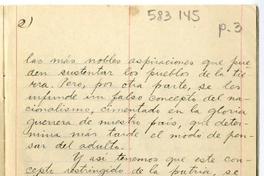 2)
583145
p. 3
las más nobles aspiraciones que pue
den sustentar los pueblos de la tie
rra. Pero, por otra parte, se les
infunde un falso concepto del na-
cionalismo, cimentado en la gloria
guerrera de nuestro país, que deter
mina más tarde el modo de pen-
sar del adulto.
Y así tenemos que este con
cepto restringido de la patria, se